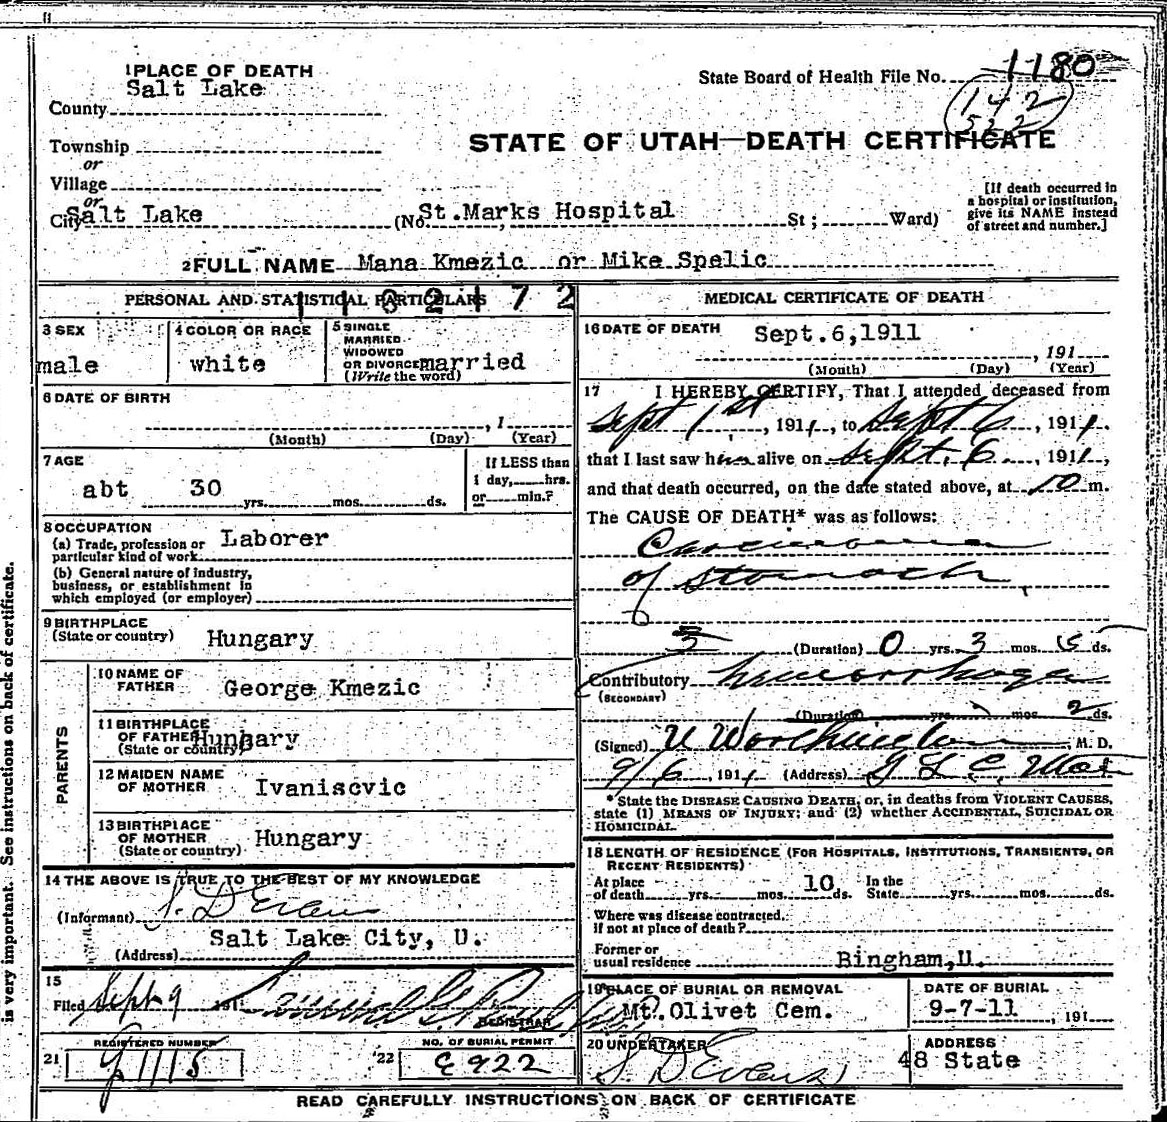 1 PLACE OF DEATH
Salt Lake
County
State Board of Health File No. 1180
142
522
Township
or
Village
or
City Salt Lake (No. St.Marks Hospital St; Ward)
STATE OF UTAH—DEATH CERTIFICATE
[If death occurred in
a hospital or institution,
give its NAME instead
of street and number.]
2 FULL NAME Mana Kmezic or Mike Spelic
PERSONAL AND STATISTICAL PARTICULARS
3 SEX
male
4 COLOR OR RACE
white
5 SINGLE
MARRIED
WIDOWED
OR DIVORCED married
(Write the word)
6 DATE OF BIRTH
, 1
(Month) (Day) (Year)
7 AGE
abt 30 yrs. mos. ds.
If LESS than
1 day, hrs.
or min.?
8 OCCUPATION
(a) Trade, profession or
particular kind of work Laborer
(b) General nature of industry,
business, or establishment in
which employed (or employer)
9 BIRTHPLACE
(State or country) Hungary
PARENTS
10 NAME OF
FATHER George Kmezic
11 BIRTHPLACE
OF FATHER Hungary
(State or country)
12 MAIDEN NAME
OF MOTHER Ivaniscvic
13 BIRTHPLACE
OF MOTHER Hungary
(State or country)
14 THE ABOVE IS TRUE TO THE BEST OF MY KNOWLEDGE
(Informant) S. D Evans
Salt Lake City, U.
(Address)
15
Filed Sept 9 191
REGISTRAR
REGISTERED NUMBER
21
NO. OF BURIAL PERMIT
22 E922
MEDICAL CERTIFICATE OF DEATH
16 DATE OF DEATH Sept.6,1911
, 191
(Month) (Day) (Year)
17 I HEREBY CERTIFY, That I attended deceased from
Sept 1st, 1911, to Sept 6, 1911.
that I last saw him alive on Sept. 6, 1911,
and that death occurred, on the date stated above, at 10 m.
The CAUSE OF DEATH* was as follows:
Carcinoma
of Stomach
(Duration) 0 yrs. 3 mos. 5 ds.
Contributory hemorrhage
(SECONDARY)
(Duration) yrs. mos. 2 ds.
(Signed) U Worthington, M. D.
9/6, 1911 (Address) S L C, Utah
*State the DISEASE CAUSING DEATH, or, in deaths from VIOLENT CAUSES,
state (1) MEANS OF INJURY; and (2) whether ACCIDENTAL, SUICIDAL OR
HOMICIDAL.
18 LENGTH OF RESIDENCE (FOR HOSPITALS, INSTITUTIONS, TRANSIENTS, OR
RECENT RESIDENTS)
At place
of death yrs. mos. 10 ds. In the
State yrs. mos. ds.
Where was disease contracted,
if not at place of death?
Former or
usual residence Bingham,U.
19 PLACE OF BURIAL OR REMOVAL
Mt. Olivet Cem.
DATE OF BURIAL
9-7-11, 191
20 UNDERTAKER
S. D Evans
ADDRESS
48 State
READ CAREFULLY INSTRUCTIONS ON BACK OF CERTIFICATE
is very important. See instructions on back of certificate.